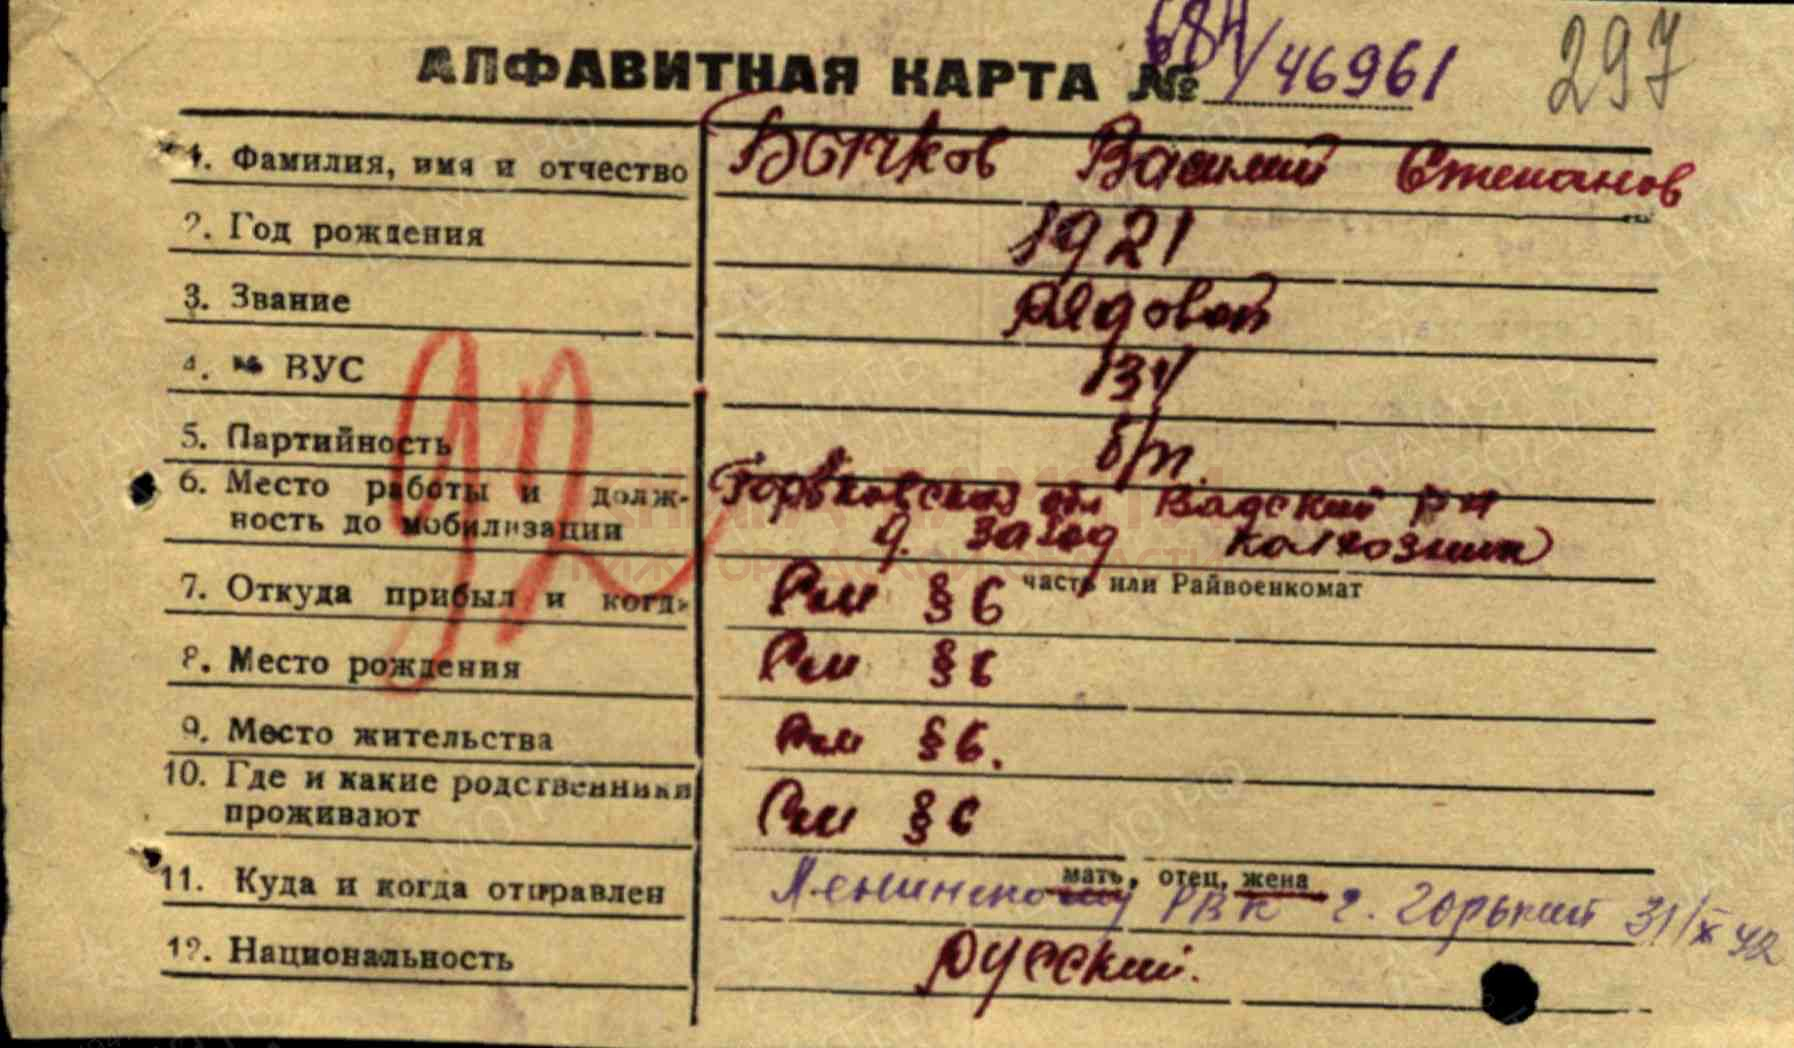 АЛФАВИТНАЯ КАРТА № 684/46961
297
1. Фамилия, имя и отчество Бычков Василий Степанов
2. Год рождения 1921
3. Звание Рядовой
4. № ВУС 131
5. Партийность б/п.
6. Место работы и долж- Горьковская обл Вадский р-н
ность до мобилизации д. Заход колхозник
92
КНИГА ПАМЯТИ
НИЖЕГОРОДСКОЙ ОБЛАСТИ
7. Откуда прибыл и когда См § 6 часть или Райвоенкомат
8. Место рождения См § 6
9. Место жительства См § 6.
10. Где и какие родственники
проживают См § 6
мать, отец, жена
11. Куда и когда отправлен Ленинскому РВК г. Горький 31/X 42
12. Национальность русский.